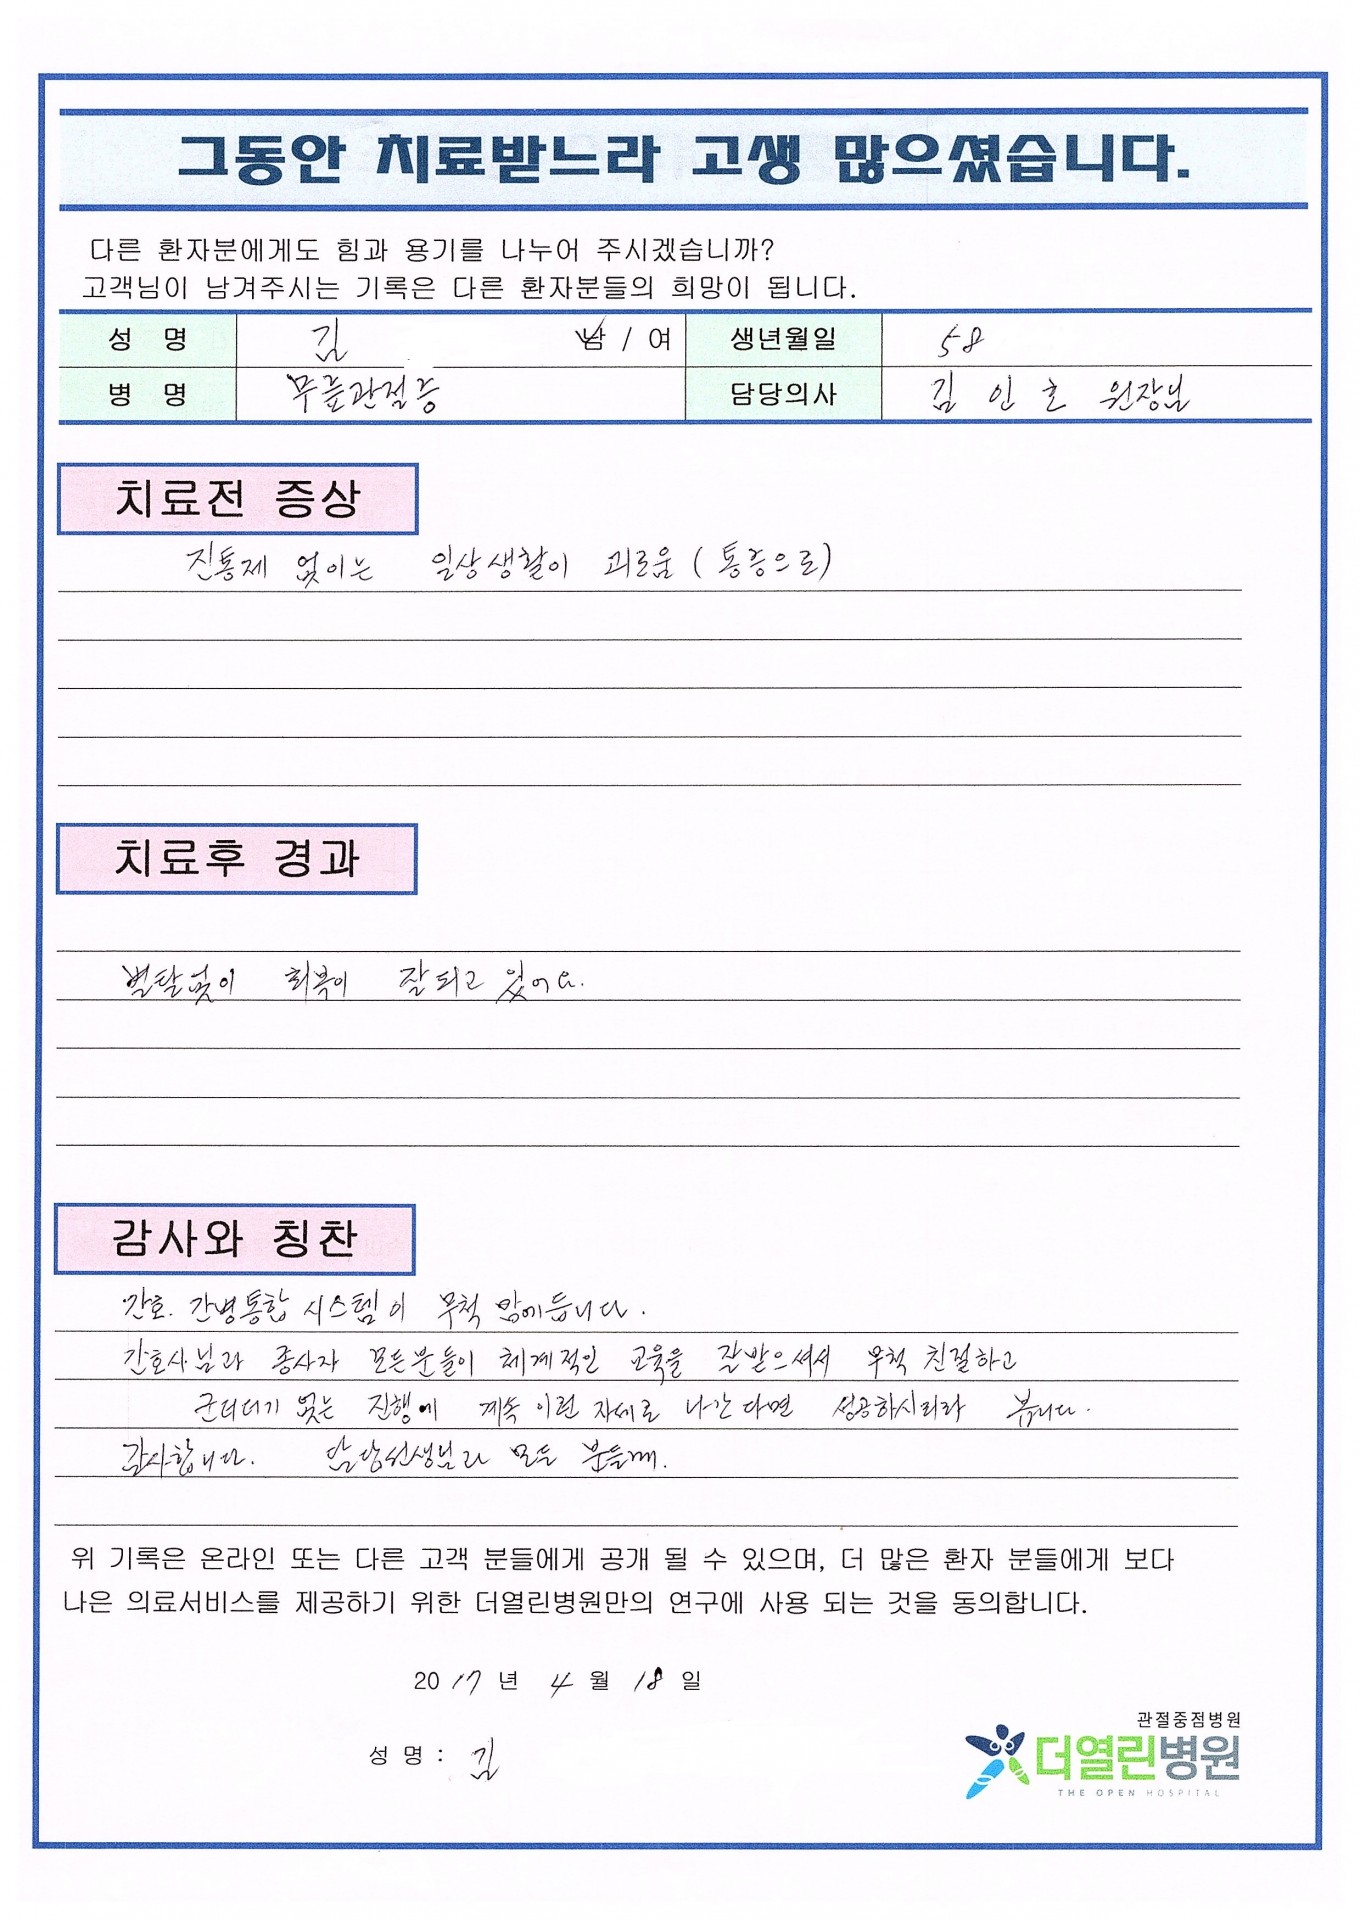 그동안 치료받느라 고생 많으셨습니다.
다른 환자분에게도 힘과 용기를 나누어 주시겠습니까?
고객님이 남겨주시는 기록은 다른 환자분들의 희망이 됩니다.
성 명 김 남 / 여 생년월일 58
병 명 무릎관절증 담당의사 김 인 호 원장님
치료전 증상
진통제 없이는 일상생활이 괴로움 (통증으로)
치료후 경과
별탈없이 회복이 잘되고 있어요.
감사와 칭찬
간호. 간병통합 시스템이 무척 맘에듭니다.
간호사님과 종사자 모든분들이 체계적인 교육을 잘받으셔서 무척 친절하고
군더더기 없는 진행에 계속 이런 자세로 나간다면 성공하시리라 봅니다.
감사합니다. 담당선생님과 모든 분들께.
위 기록은 온라인 또는 다른 고객 분들에게 공개 될 수 있으며, 더 많은 환자 분들에게 보다
나은 의료서비스를 제공하기 위한 더열린병원만의 연구에 사용 되는 것을 동의합니다.
2017 년 4 월 18 일
성 명 : 김
관절중점병원
더열린병원
THE OPEN HOSPITAL